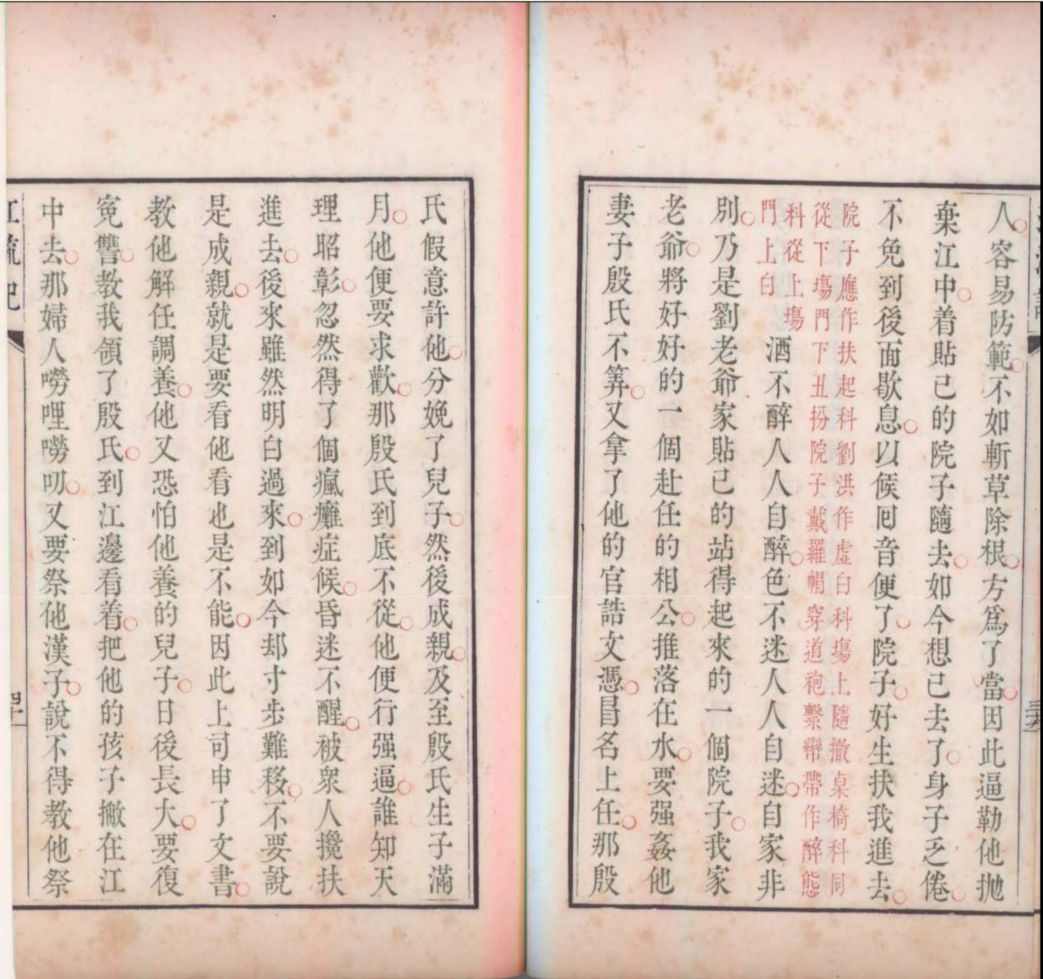 人容易防範不如斬草除根方爲了當因此逼勒他抛
棄江中着貼己的院子隨去如今想已去了身子乏倦
不免到後面歇息以候囘音便了院子好生扶我進去
院子應作扶起科劉洪作虛白科場上隨撤桌椅科同
從下場門下丑扮院子戴羅帽穿道袍繫鸞帶作醉態
科從上場
門上白
酒不醉人人自醉色不迷人人自迷自家非
別乃是劉老爺家貼己的站得起來的一個院子我家
老爺將好好的一個赴任的相公推落在水要强姦他
妻子殷氏不筭又拿了他的官誥文憑冒名上任那殷
氏假意許他分娩了兒子然後成親及至殷氏生子滿
月他便要求歡那殷氏到底不從他便行强逼誰知天
理昭彰忽然得了個瘋癱症候昏迷不醒被衆人攙扶
進去後來雖然明白過來到如今却寸步難移不要說
是成親就是要看他看也是不能因此上司申了文書
教他解任調養他又恐怕他養的兒子日後長大要復
寃讐教我領了殷氏到江邊看着把他的孩子撇在江
中去那婦人嘮哩嘮叨又要祭他漢子說不得教他祭
江流記